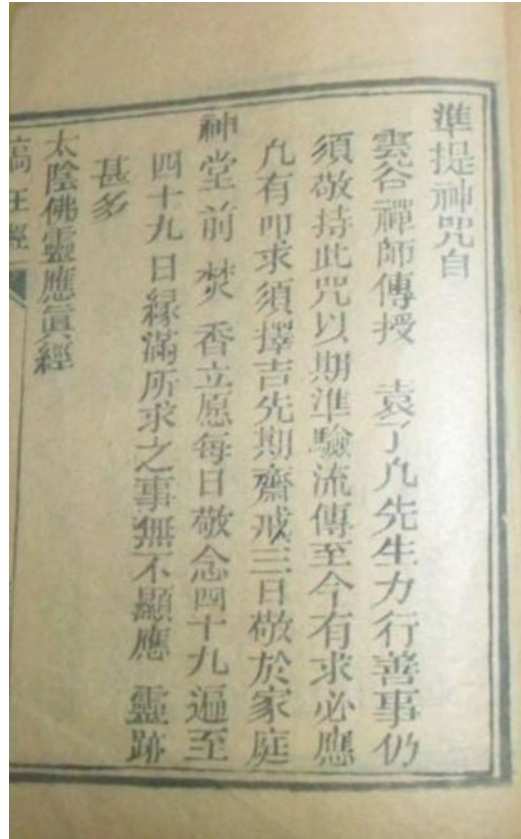 準提神咒自
雲谷禪師傳授　袁了凡先生力行善事仍
須敬持此咒以期準驗流傳至今有求必應
凡有叩求須擇吉先期齋戒三日敬於家庭
神堂前焚香立愿每日敬念四十九遍至
四十九日緣滿所求之事無不顯應靈跡
甚多
太陰佛靈應眞經
王經